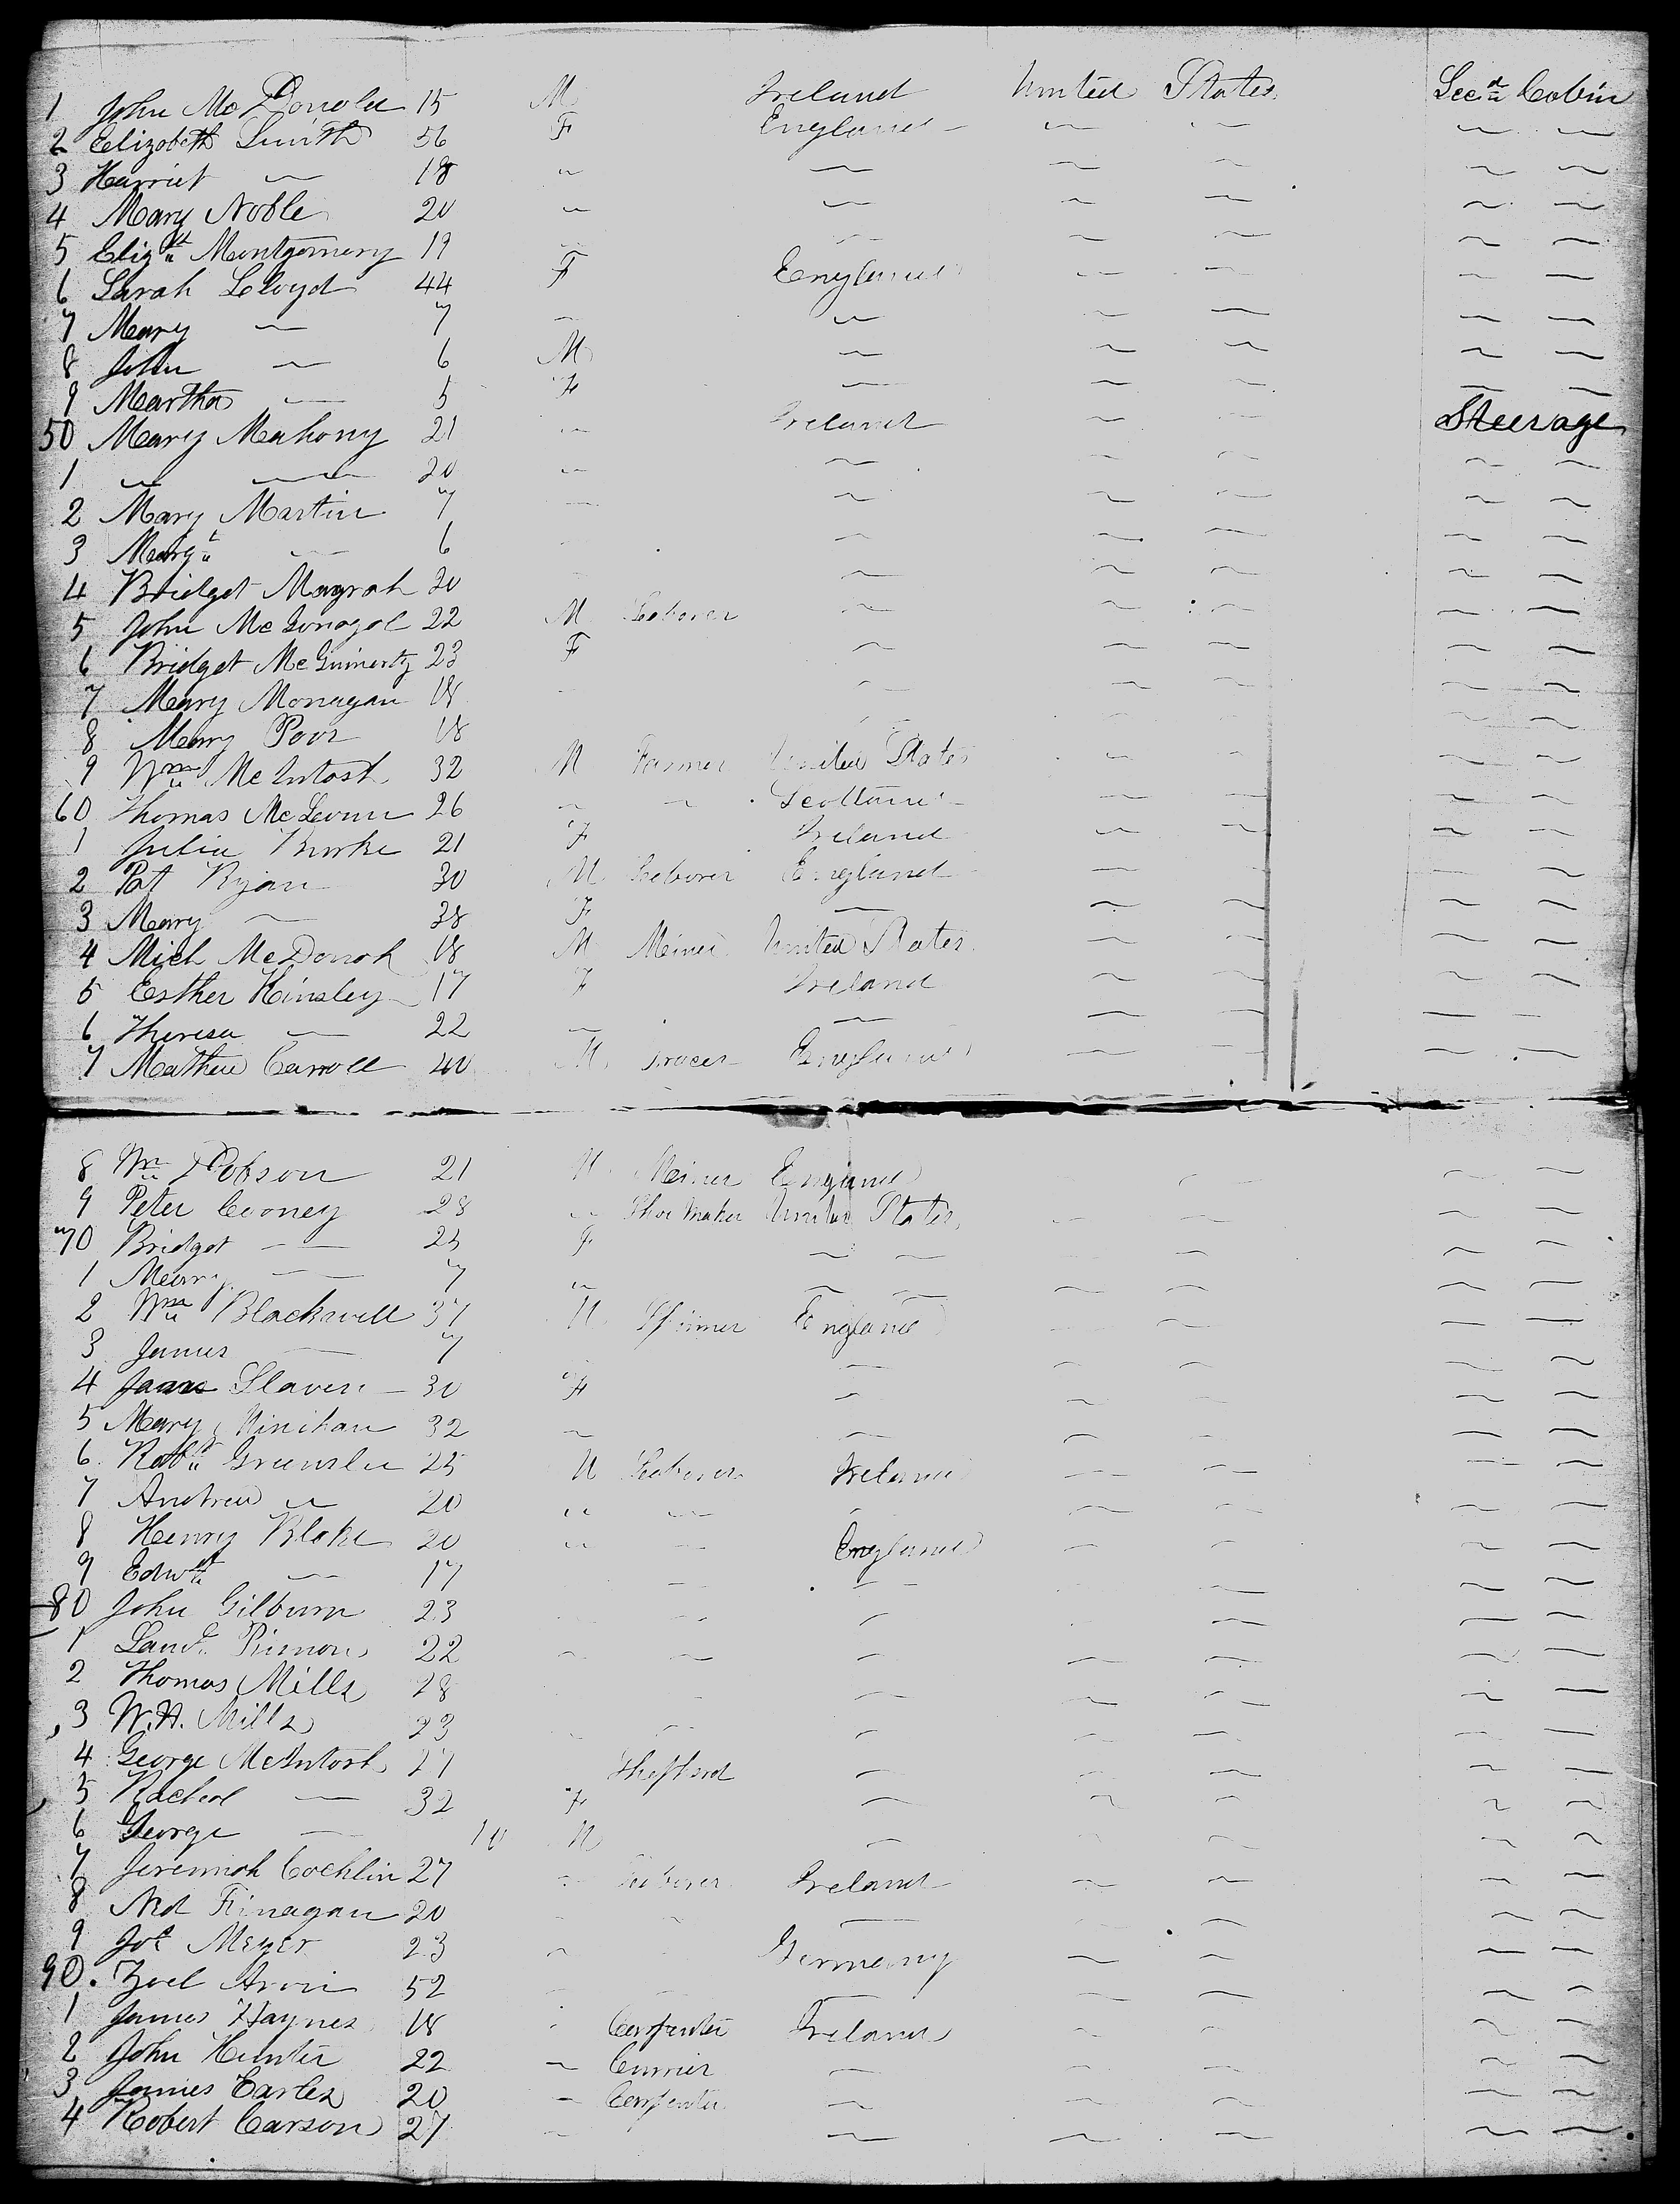 1 John McDonold 15 M Ireland United States Secd Cabin
2 Elizabeth Smith 56 F England — " " " "
3 Harriet " 18 " " " " " "
4 Mary Noble 20 " " " " " "
5 Elizth Montgomery 19 " " " " " "
6 Sarah Lloyd 44 F England " " " "
7 Mary " 7 " " " " " "
8 John " 6 M " " " " "
9 Martha " 5 F " " " " "
50 Mary Mahony 21 " Ireland " " Steerage
1 " " 20 " " " " " "
2 Mary Martin 7 " " " " " "
3 Margt " 6 " " " " "
4 Bridget Magrah 20 " " " " " "
5 John McGonagal 22 M Laborer " " " " "
6 Bridget McGuinerty 23 F " " " " "
7 Mary Monagan 18 " " " " " "
8 Mary Poor 18 " " " "
9 Wm McIntosh 32 M Farmer United States " " " "
60 Thomas McLevin 26 " " Scotland " " " "
1 Julia Burke 21 F Ireland " " " "
2 Pat Ryan 30 M Laborer England " " " "
3 Mary " 28 F " " " " "
4 Mich McDonoh 18 M Miner United States " " " "
5 Esther Kinsley 17 F Ireland " " " "
6 Theresa " 22 " " " " " "
7 Mathew Carroll 40 M Grocer England " " " "
8 Wm Dobson 21 M Miner England " " " "
9 Peter Cooney 28 " Shoe Maker United States " " " "
70 Bridget " 25 F " " " " "
1 Mary " 7 " " " " " " "
2 Wm Blackwell 37 M Spinner England " " " "
3 James " 7 " " " " "
4 Jane Slaven 30 F " " " " "
5 Mary 32 " " " " " "
6 Robt Greenslee 25 M Laborer Ireland " " " "
7 Andrew " 20 " " " " " " "
8 Henry Blake 20 " " England " " " "
9 Edwd " 17 " " " " "
80 John Gilburn 23 " " " " " "
1 22 " " " " " " "
2 Thomas Mills 28 " " " " "
3 W.H. Mills 23 " " " " " " "
4 George McIntosh 27 Shepherd " " " " "
5 Rachel " 32 F " " " " "
6 George " 10 M " " " " "
7 Jeremiah Cochlin 27 " Laborer Ireland " " " "
8 Md Finagan 20 " " " " " "
9 Jos Meyer 23 " Germany " " " "
90. 52 " " " " " "
1 James Haynes 18 " Carpenter Ireland " " " "
2 John Hunter 22 " Currier " " " " "
3 James Earles 20 " Carpenter " " " " "
4 Robert Carson 27 " " " " " "